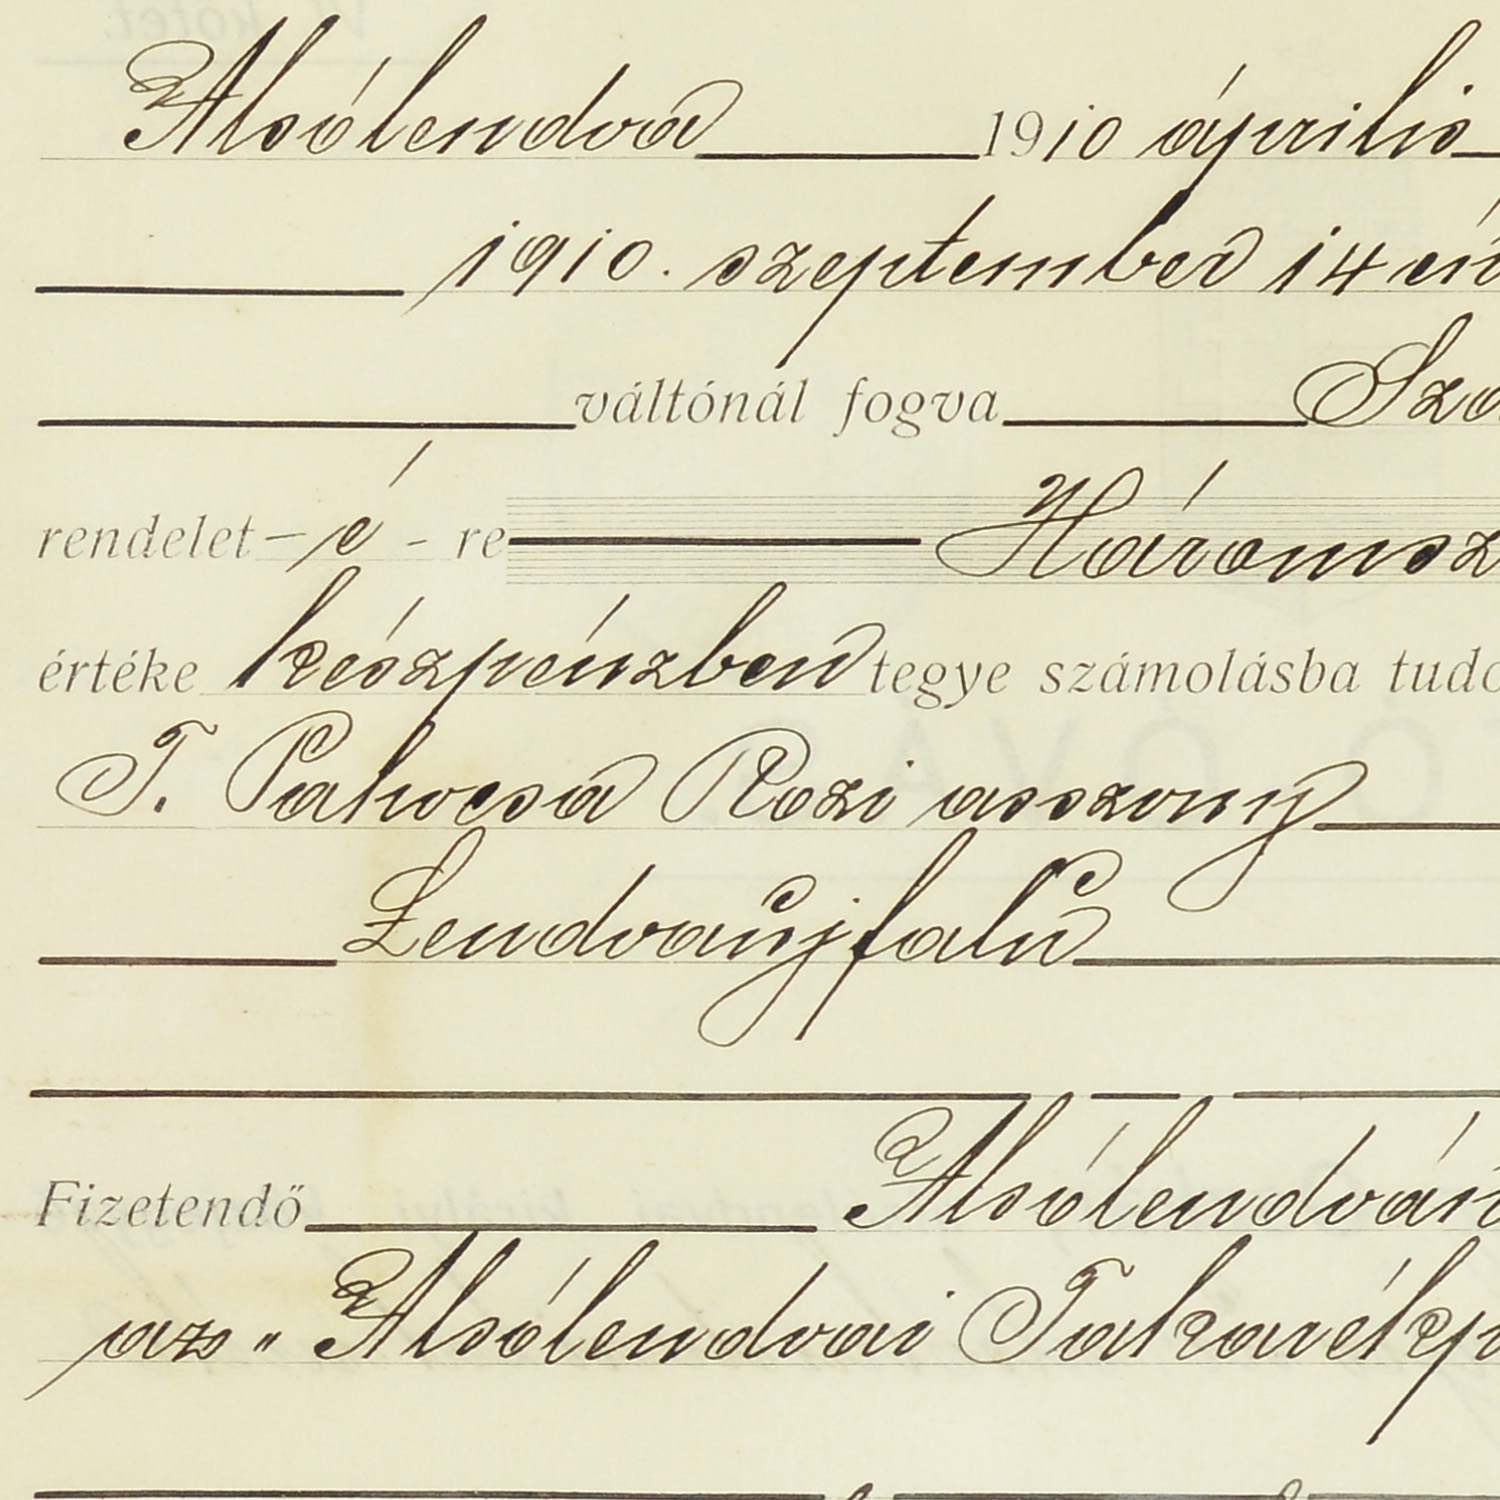 Alsólendva 1910 április
1910. szeptember 14 én
váltónál fogva Szo
rendelet - é - re Háromsz
értéke készpénzben tegye számolásba tudo
T. Pakocsa Rozi asszony
Lendvaújfalu
Fizetendő Alsólendván
az „Alsólendvai Takarékp